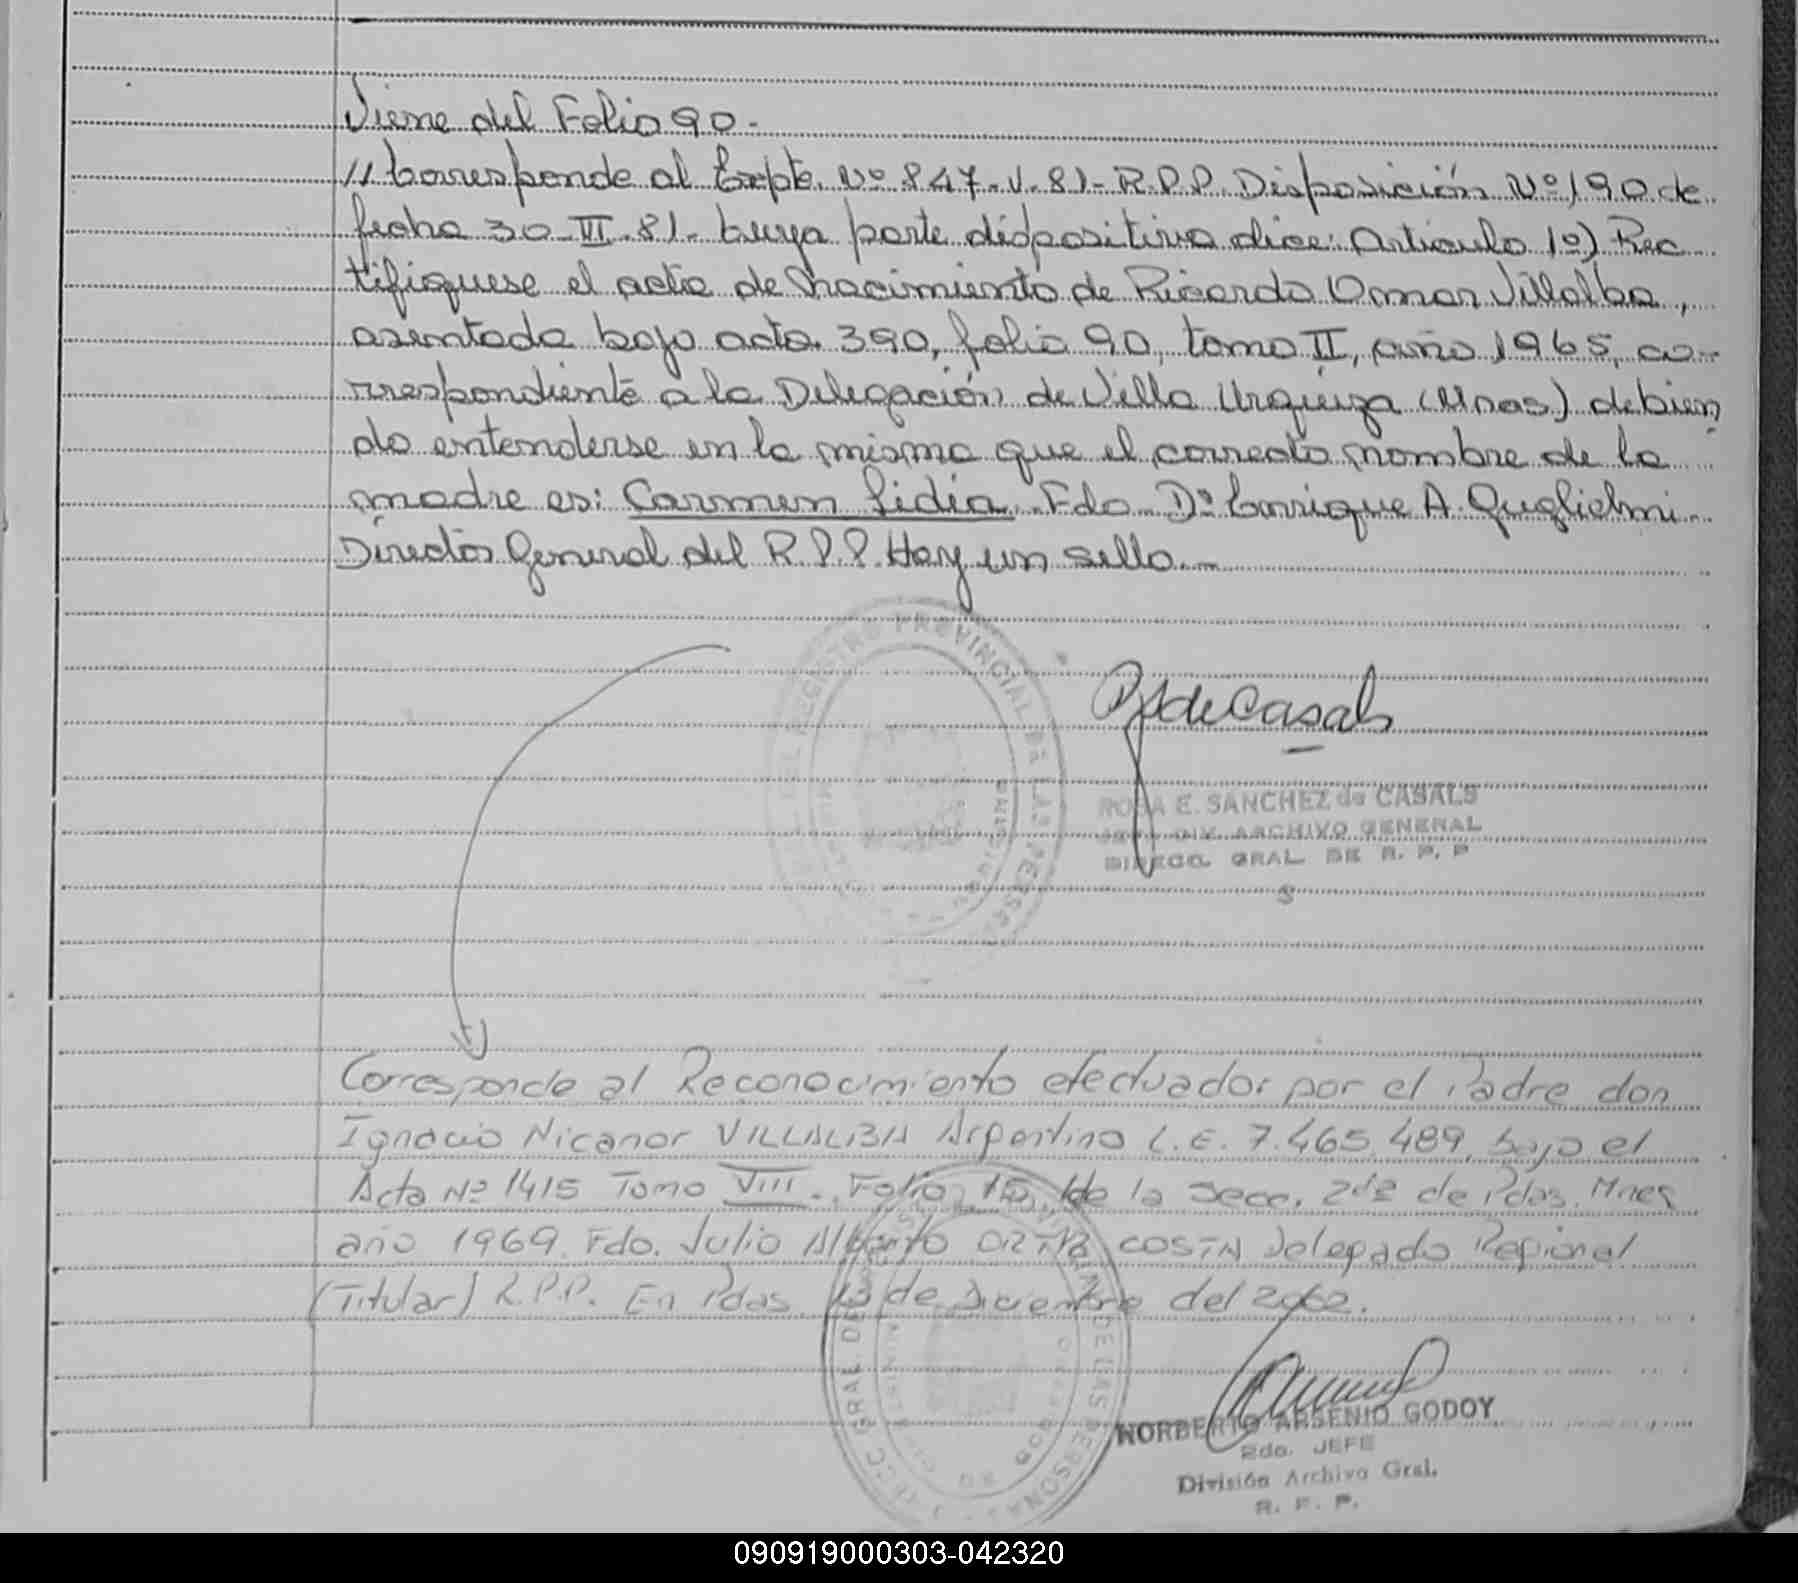 Viene del Folio 90.-
// Corresponde al Expte. Nº 847-V-81- R.P.P. Disposición Nº 190 de
fecha 30-VI-81- Cuya parte dispositiva dice: Artículo 1º) Rec
tifíquese el acta de nacimiento de Ricardo Omar Villalba,
asentada bajo acta 390, folio 90, tomo II, año 1965, co-
rrespondiente a la Delegación de Villa Urquiza (Mnes) debien
do entenderse en la misma que el correcto nombre de la
madre es: Carmen Lidia. Fdo. Dº Enrique A. Guglielmi.
Director General del R.P.P. Hay un sello.-
REGISTRO PROVINCIAL DE LAS PERSONAS
RdeCasals
ROSA E. SANCHEZ de CASALS
JEFE DIV. ARCHIVO GENERAL
DIRECC. GRAL. DE R. P. P
S
Corresponde al Reconocimiento efectuador por el Padre don
Ignacio Nicanor VILLALBA Argentino L.E. 7.465.489, bajo el
Acta Nº 1415 Tomo VIII. Folio 15, de la Secc. 2da de Pdas. Mnes
año 1969. Fdo. Julio Alberto ORTIZ COSTA Delegado Regional
(Titular) R.P.P. En Pdas. 13 de Diciembre del 2002.
NORBERTO ARSENIO GODOY
2do. JEFE
División Archivo Gral.
R. P. P.
090919000303-042320